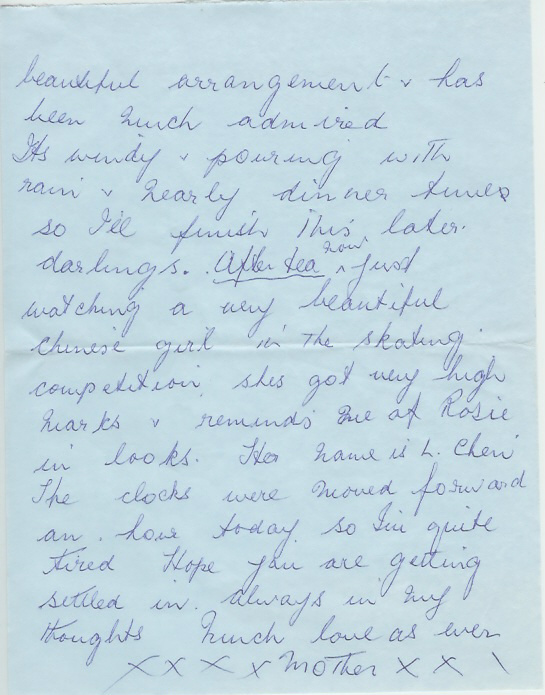 beautiful arrangement & has
been much admired
Its windy & pouring with
rain & nearly dinner time
so I'll finish this later.
darlings. After tea now, just
watching a very beautiful
chinese girl in the skating.
competition, shes got very high
marks & reminds me of Rosie
in looks. Her name is L. Chen
The clocks were moved forward
an. hour today, so I'm quite
tired Hope you are getting
settled in. always in my
thoughts Much love as ever
X X X X Mother X X \